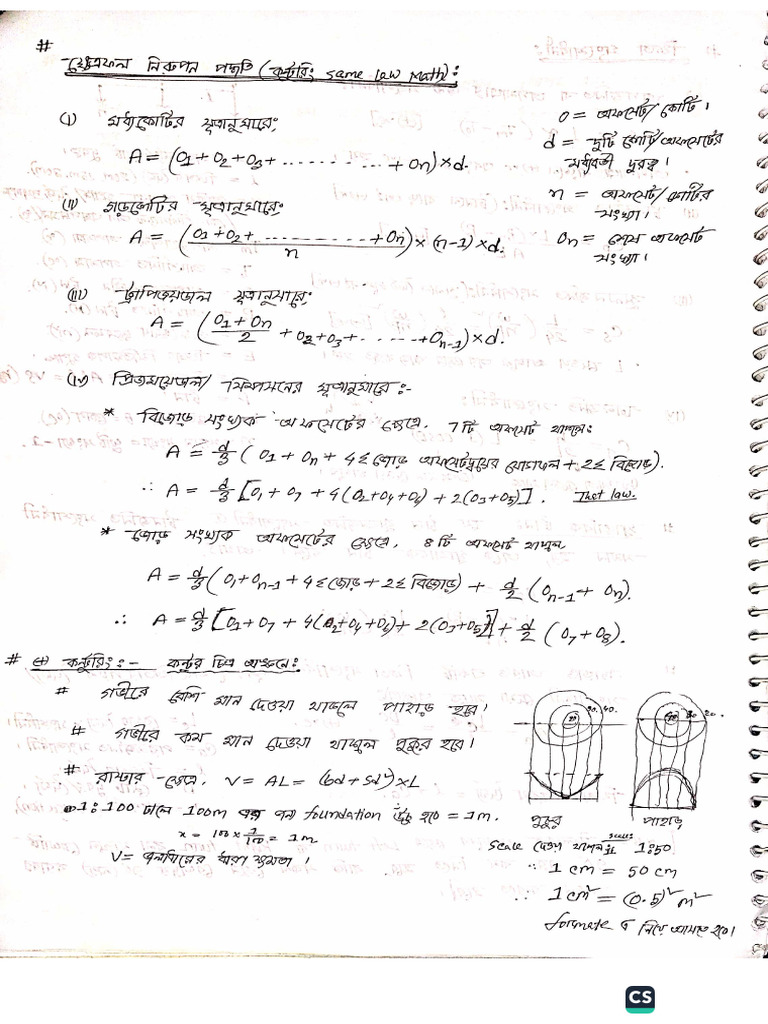 #
ক্ষেত্রফল নিরুপন পদ্ধতি (কন্টুরিং same law Math):
(i) মধ্যকোটির সূত্রানুসারে:
A = (O1 + O2 + O3 + ........... + On) × d.
O = অফসেট/ কোটি।
d = দুটি কোটি/অফসেটের
মধ্যবর্তী দুরত্ব।
n = অফসেট/কোটির
সংখ্যা।
On = শেষ অফসেট
সংখ্যা।
(ii) গড়কোটির সূত্রানুসারে:
A = ((O1 + O2 + ........... + On)/n) × (n-1) × d.
(iii) ট্রাপিজয়ডাল সূত্রানুসারে:
A = ((O1 + On)/2 + O2 + O3 + ...... + On-1) × d.
(iv) প্রিজময়েডাল/ সিম্পসনের সূত্রানুসারে:-
* বিজোড় সংখ্যক অফসেটের ক্ষেত্রে, 7 টি অফসেট থাকলে:
A = d/3 (O1 + On + 4Σজোড় অফসেটদ্বয়ের যোগফল + 2Σ বিজোড়).
∴ A = d/3 [O1 + O7 + 4(O2+O4+O6) + 2(O3+O5)]. That law.
* জোড় সংখ্যক অফসেটের ক্ষেত্রে, 8 টি অফসেট থাকলে
A = d/3 (O1+On-1 + 4Σজোড় + 2Σবিজোড়) + d/2 (On-1 + On).
∴ A = d/3 [O1 + O7 + 4(O2+O4+O6) + 2(O3+O5)] + d/2 (O7+O8).
# কন্টুরিং:- কন্টুর চিত্র অঙ্কনে:
# গভীরে বেশি মান দেওয়া থাকলে পাহাড় হবে।
# গভীরে কম মান দেওয়া থাকলে পুকুর হবে।
# রাস্তার ক্ষেত্রে, V = AL = (bd + sd²) × L
1:100 ঢালে 100m এর জন্য foundation উঁচু হবে = 1m.
x = 100 × 1/100 = 1m
V = জলাধারের ধারণ ক্ষমতা।
30. 40.
30 20.
পুকুর
পাহাড়
scale দেওয়া থাকলে 1:50
∴ 1 cm = 50 cm
∴ 1 cm² = (0.5)² m²
formate এ নিয়ে আসতে হবে।
CS